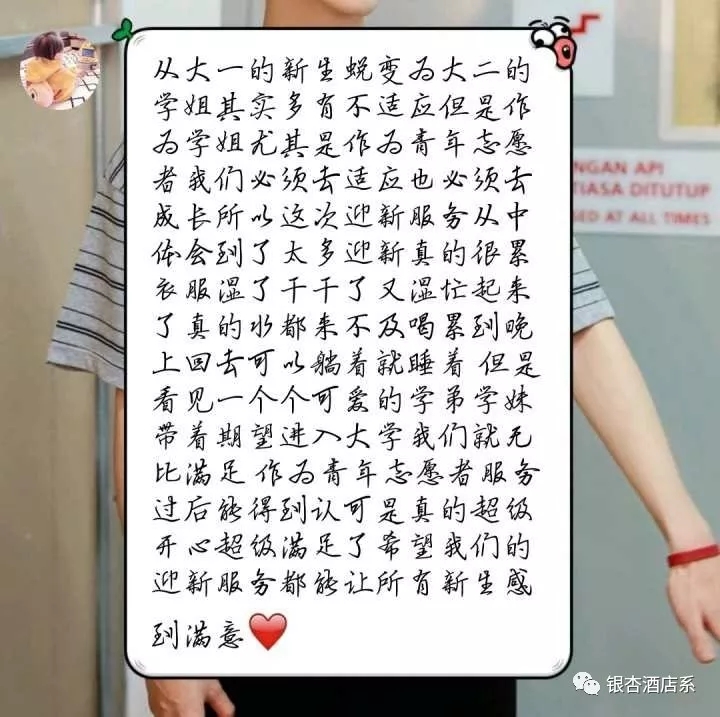 从大一的新生蜕变为大二的
学姐其实多有不适应但是作
为学姐尤其是作为青年志愿
者我们必须去适应也必须去
成长所以这次迎新服务从中
体会到了太多迎新真的很累
衣服湿了干干了又湿忙起来
了真的水都来不及喝累到晚
上回去可以躺着就睡着 但是
看见一个个可爱的学弟学妹
带着期望进入大学我们就无
比满足 作为青年志愿者服务
过后能得到认可是真的超级
开心超级满足了希望我们的
迎新服务都能让所有新生感
到满意❤️
NGAN API
TIASA DITUTUP
SED AT ALL TIMES
银杏酒店系